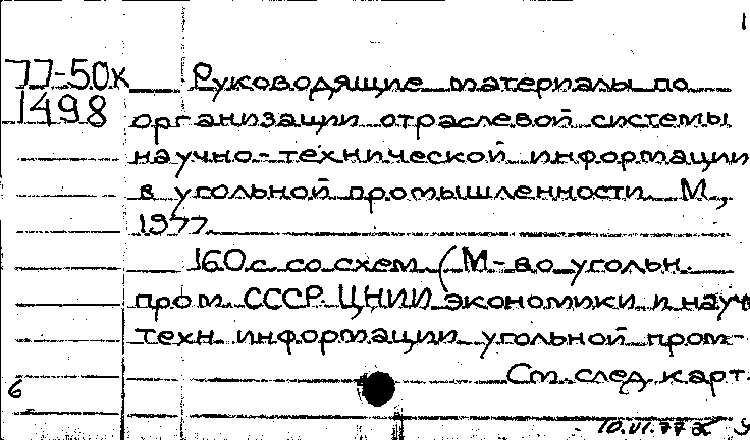 1
77-50к Руководящие материалы по
1498 организации отраслевой системы
научно-технической информации
в угольной промышленности. М.,
1977.
160 с. со схем. (М-во угольн.
пром. СССР. ЦНИИ экономики и науч.
техн. информации угольной пром-
См. след. карт.
6
10.VI.77